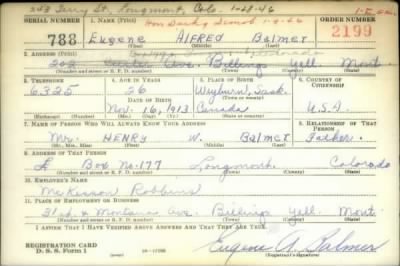 203 Terry St., Longmont, Colo. 1-28-46
SERIAL NUMBER 1. NAME (Print) ORDER NUMBER
788 Eugene ALFRED Balmer 2199
(First) (Middle) (Last)
2. ADDRESS (Print)
202 Ave. Billings Yell. Mont.
(Number and street or R. F. D. number) (Town) (County) (State)
3. TELEPHONE 4. AGE IN YEARS 5. PLACE OF BIRTH 6. COUNTRY OF CITIZENSHIP
6325 26 Weyburn, Sask.
DATE OF BIRTH (Town or county)
Nov. 16, 1913 Canada U.S.A.
(Mo.) (Day) (Yr.) (State or country)
7. NAME OF PERSON WHO WILL ALWAYS KNOW YOUR ADDRESS RELATIONSHIP OF THAT PERSON
Mr. HENRY W. Balmer Father.
(Mr., Mrs., Miss) (First) (Middle) (Last)
8. ADDRESS OF THAT PERSON
Box No. 177 Longmont Colorado
(Number and street or R. F. D. number) (Town) (County) (State)
9. EMPLOYER'S NAME
McKesson Robbins
10. PLACE OF EMPLOYMENT OR BUSINESS
31st & Montana Ave. Billings Yell. Mont.
(Number and street or R. F. D. number) (Town) (County) (State)
I AFFIRM THAT I HAVE VERIFIED ABOVE ANSWERS AND THAT THEY ARE TRUE.
REGISTRATION CARD
D. S. S. Form 1
Eugene A. Balmer
(Registrant's signature)